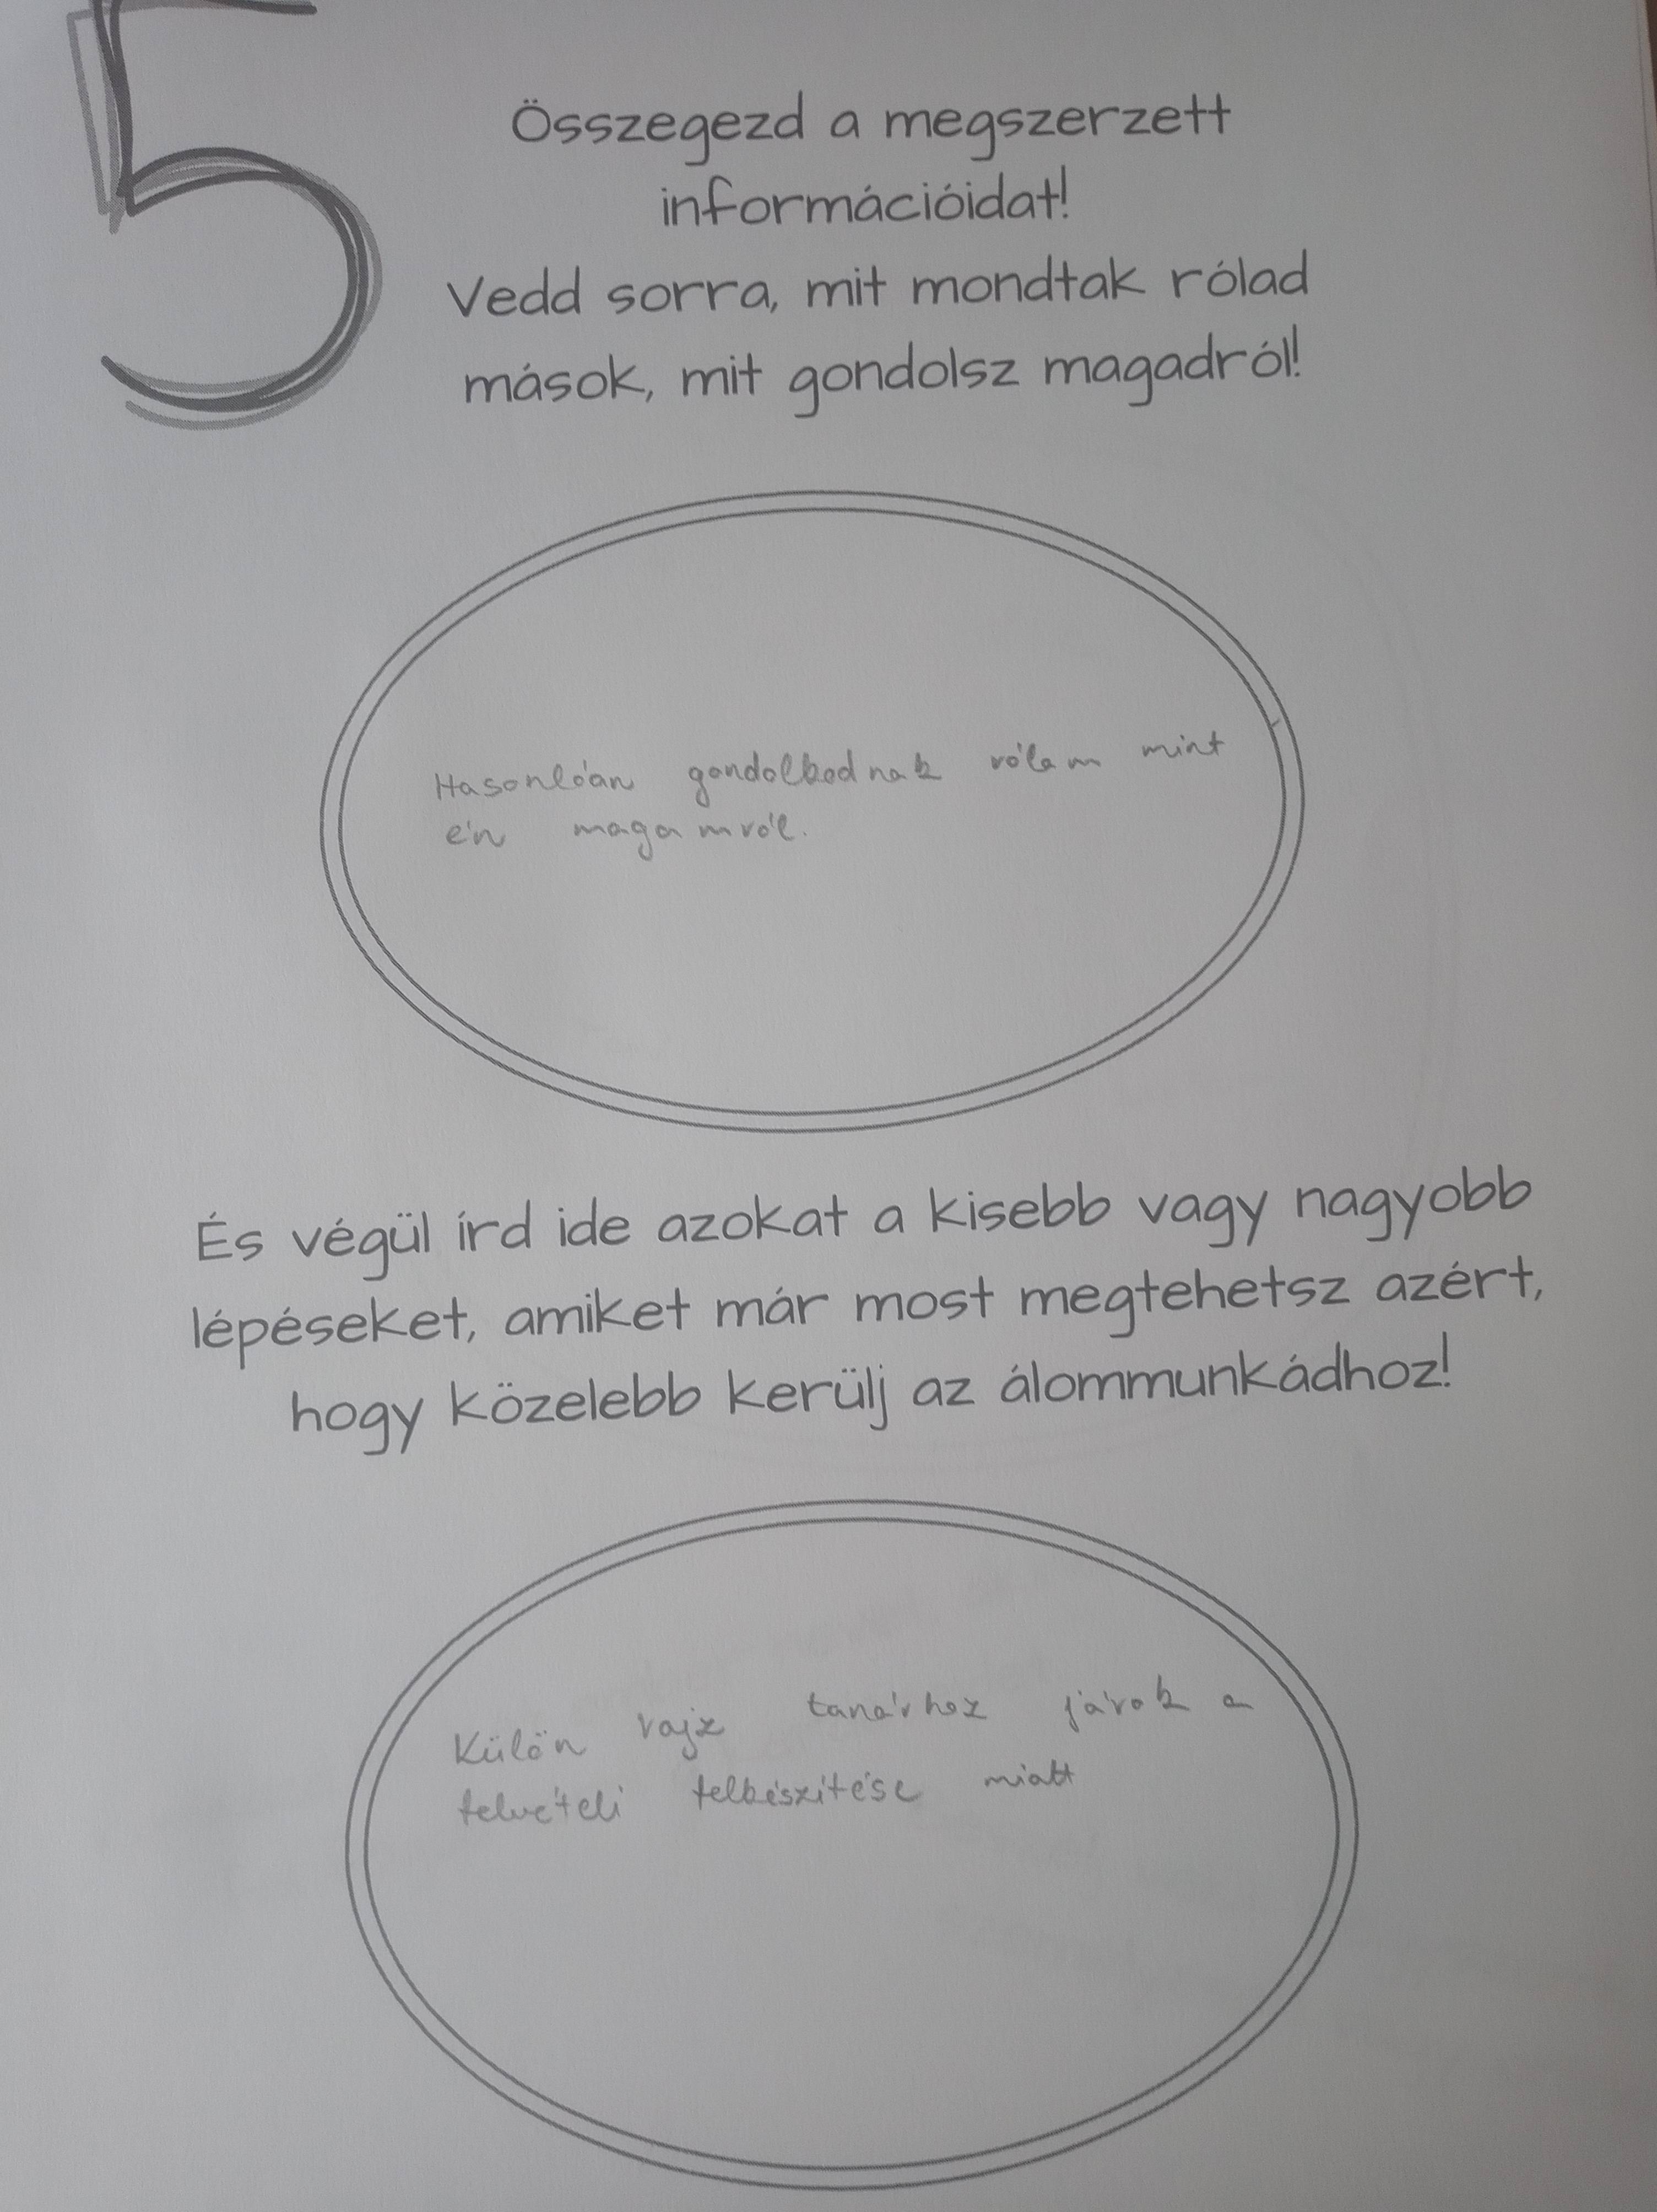 5
Összegezd a megszerzett
információidat!
Vedd sorra, mit mondtak rólad
mások, mit gondolsz magadról!
Hasonlóan gondolkodnak rólam mint
én magamról.
És végül írd ide azokat a kisebb vagy nagyobb
lépéseket, amiket már most megtehetsz azért,
hogy közelebb kerülj az álommunkádhoz!
Külön rajz tanárhoz járok a
felvételi felkészítése miatt